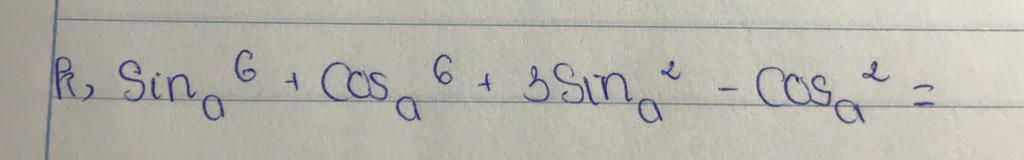 k, Sin_a^6 + Cos_a^6 + 3Sin_a^2 - Cos_a^2 =